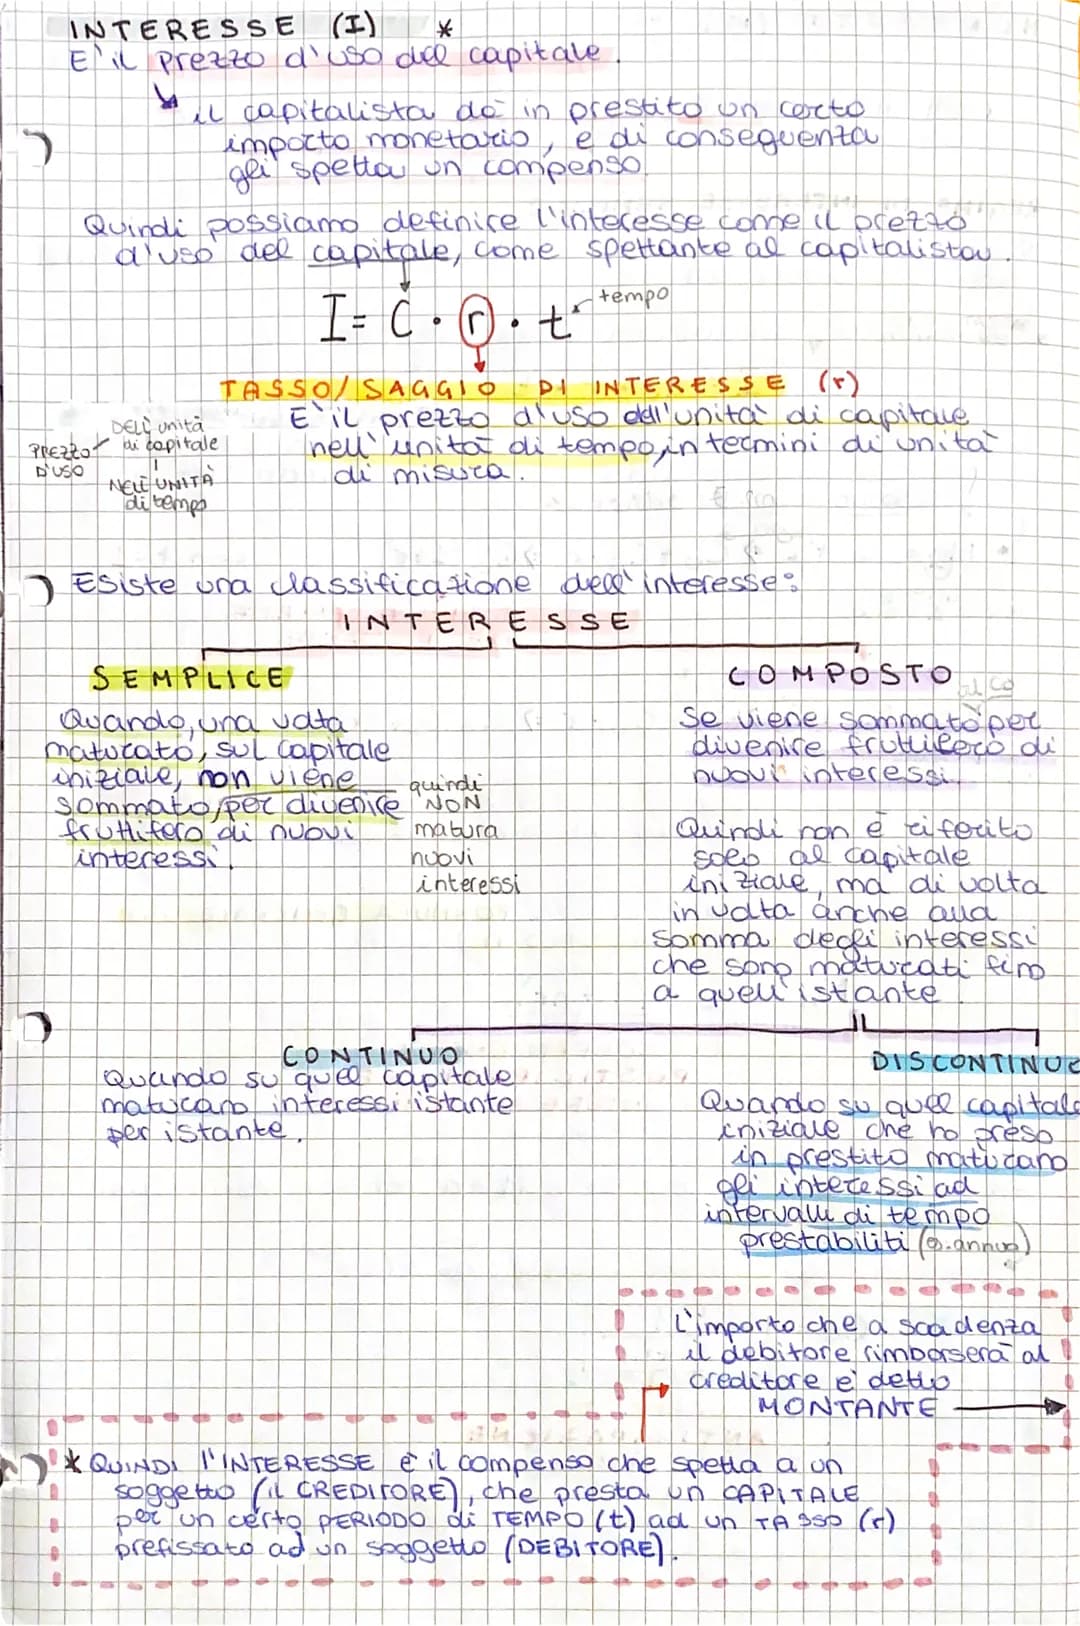 INTERESSE (I) *
E' il prezzo d'uso del capitale.
il capitalista dà in prestito un certo
importo monetario, e di conseguenza
gli spetta un compenso.
Quindi possiamo definire l'interesse come il prezzo
d'uso del capitale, come spettante al capitalista.
I = C · r · t
tempo
TASSO/SAGGIO DI INTERESSE (r)
E' il prezzo d'uso dell'unità di capitale
nell'unità di tempo, in termini di unità
di misura.
PREZZO D'USO
DELL'unità
di capitale
NELL'UNITÀ
di tempo
Esiste una classificazione dell'interesse:
INTERESSE
SEMPLICE
Quando, una volta
maturato, sul capitale
iniziale, non viene
sommato per divenire
fruttifero di nuovi
interessi.
quindi
NON
matura
nuovi
interessi
COMPOSTO
Se viene sommato per
divenire fruttifero di
nuovi interessi.
Quindi non è riferito
solo al capitale
iniziale, ma di volta
in volta anche alla
somma degli interessi
che sono maturati fino
a quell'istante.
CONTINUO
Quando su quel capitale
maturano interessi istante
per istante.
DISCONTINUO
Quando su quel capitale
iniziale che ho preso
in prestito maturano
gli interessi ad
intervalli di tempo
prestabiliti (es. annuo)
L'importo che a scadenza
il debitore rimborserà al
creditore è detto
MONTANTE
* QUINDI l'INTERESSE è il compenso che spetta a un
soggetto (il CREDITORE), che presta un CAPITALE
per un certo PERIODO di TEMPO (t) ad un TASSO (r)
prefissato ad un soggetto (DEBITORE).